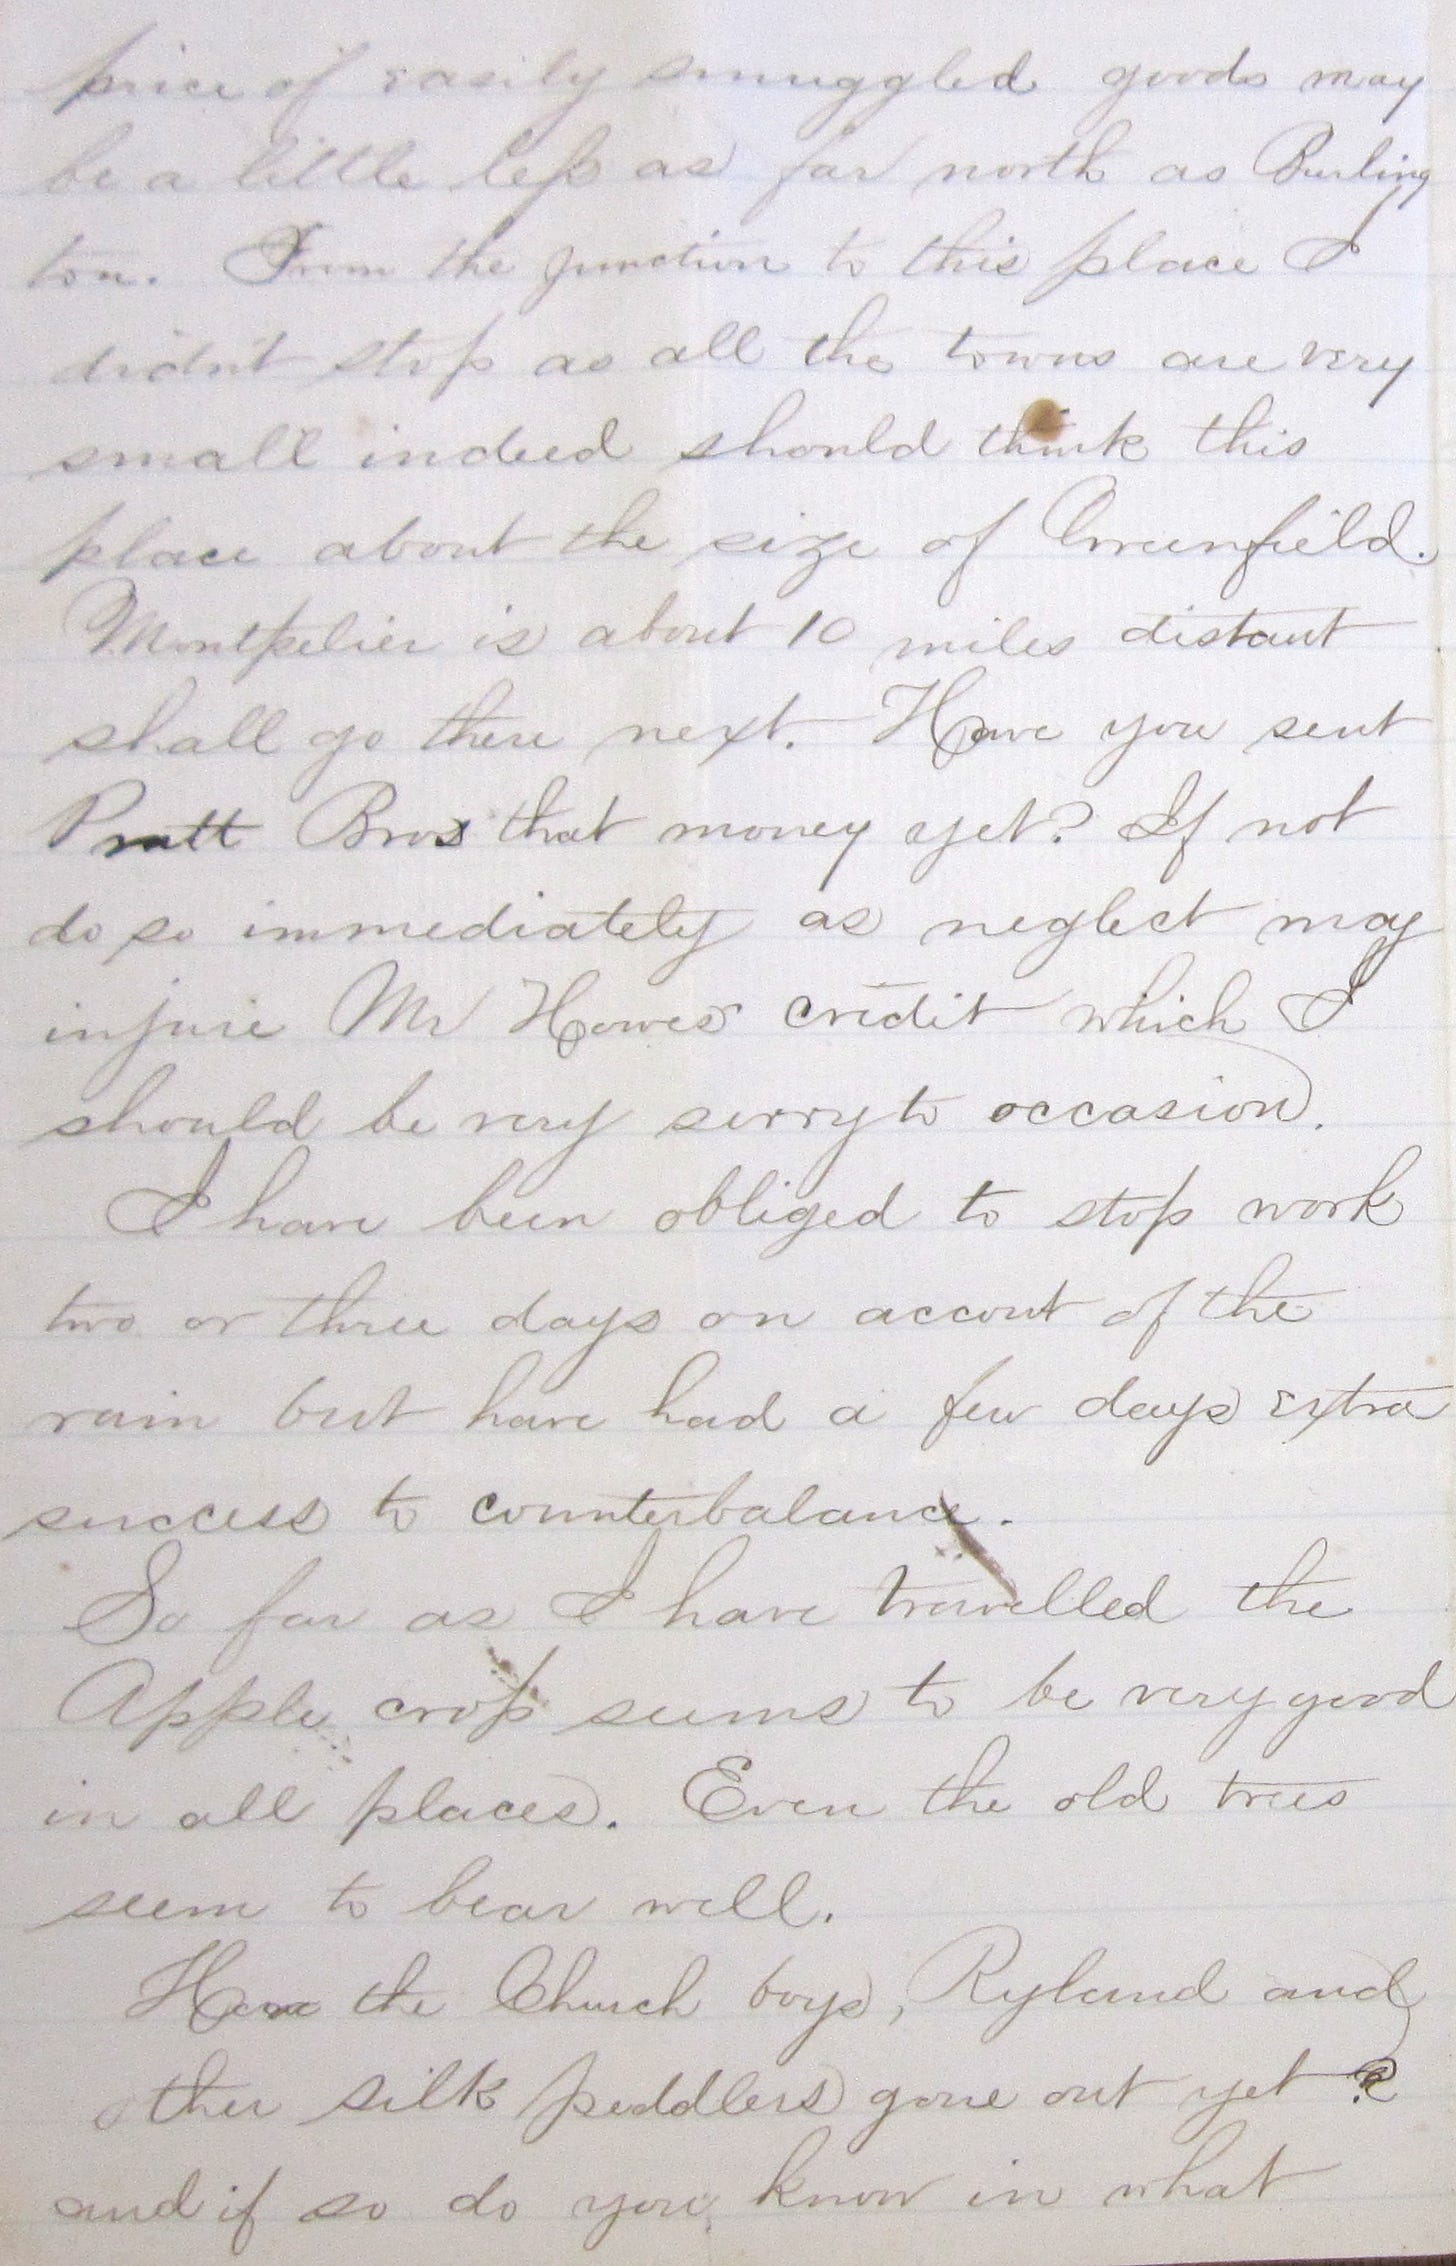 price of easily smuggled goods may
be a little less as far north as Burling
ton. From the junction to this place I
didn't stop as all the towns are very
small indeed should think this
place about the size of Greenfield.
Montpelier is about 10 miles distant
shall go there next. Have you sent
Pratt Bros that money yet? If not
do so immediately as neglect may
injure Mr Howes credit which I
should be very sorry to occasion.
I have been obliged to stop work
two or three days on accout of the
rain but have had a few days extra
success to counterbalance.
So far as I have travelled the
Apple crop seems to be very good
in all places. Even the old trees
seem to bear well.
Have the Church boys, Ryland and
other silk peddlers gone out yet?
and if so do you know in what